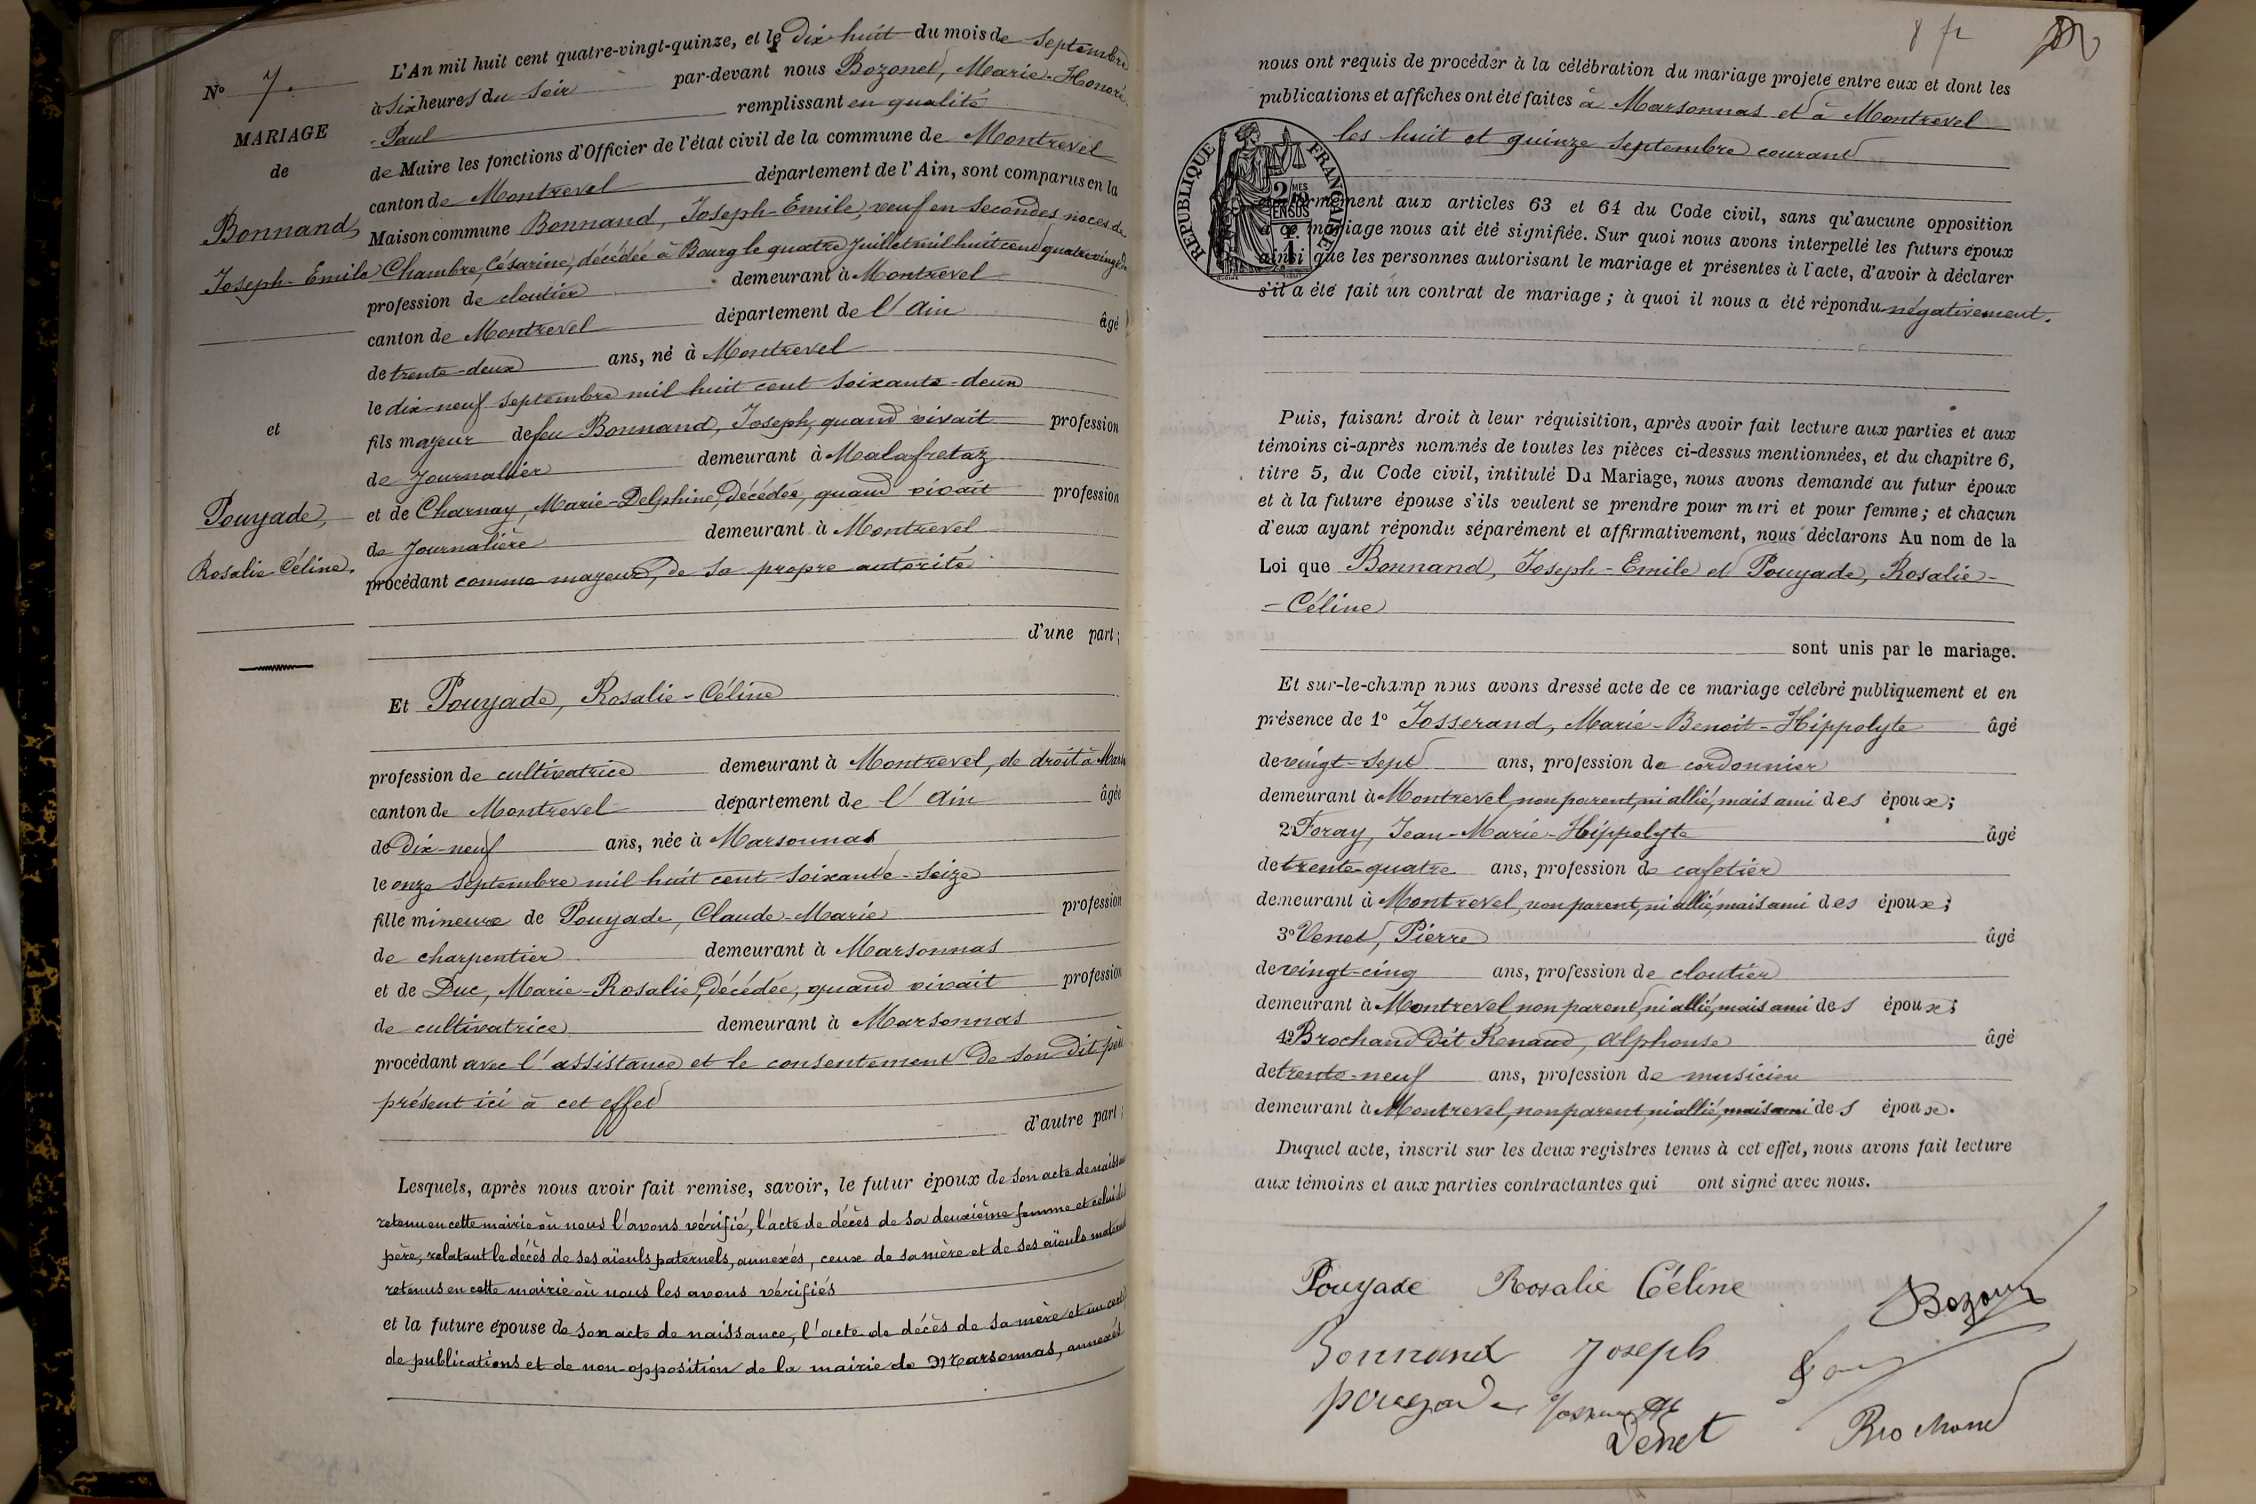 Nº 7.
MARIAGE
de
Bonnand,
Joseph-Emile
et
Pouyade,
Rosalie Céline.
L'An mil huit cent quatre-vingt-quinze, et le dix huit du mois de septembre
à six heures du soir par-devant nous Bozonet, Marie-Honoré
-Paul remplissant en qualité
de Maire les fonctions d'Officier de l'état civil de la commune de Montrevel
canton de Montrevel département de l'Ain, sont comparus en la
Maison commune Bonnand, Joseph-Emile, veuf en secondes noces de
Chambre, Césarine, décédée à Bourg le quatre juillet mil huit cent quatre vingt
profession de cloutier demeurant à Montrevel
canton de Montrevel département de l'Ain âgé
de trente-deux ans, né à Montrevel
le dix-neuf septembre mil huit cent soixante-deux
fils majeur de feu Bonnand, Joseph, quand vivait profession
de journalier demeurant à Malafretaz
et de Charnay, Marie-Delphine, décédée, quand vivait profession
de journalière demeurant à Montrevel
procédant comme majeur, de sa propre autorité
d'une part;
Et Pouyade, Rosalie-Céline
profession de cultivatrice demeurant à Montrevel, de droit à
canton de Montrevel département de l'Ain âgée
de dix-neuf ans, née à Marsonnas
le onze septembre mil huit cent soixante-seize
fille mineure de Pouyade, Claude-Marie profession
de charpentier demeurant à Marsonnas
et de Duc, Marie-Rosalie, décédée, quand vivait profession
de cultivatrice demeurant à Marsonnas
procédant avec l'assistance et le consentement de son dit père
présent ici à cet effet
d'autre part;
Lesquels, après nous avoir fait remise, savoir, le futur époux de son acte de naissance
retenu en cette mairie où nous l'avons vérifié, l'acte de décès de sa deuxième femme et celui de
père, relatant le décès de ses aïeuls paternels, annexés, ceux de sa mère et de ses aïeuls maternels
retenus en cette mairie où nous les avons vérifiés
et la future épouse de son acte de naissance, l'acte de décès de sa mère et un
de publications et de non-opposition de la mairie de Marsonnas, annexés
8 fr
nous ont requis de procéder à la célébration du mariage projeté entre eux et dont les
publications et affiches ont été faites à Marsonnas et à Montrevel
les huit et quinze septembre courant
RÉPUBLIQUE FRANÇAISE
2 MES
EN SUS
ment aux articles 63 et 64 du Code civil, sans qu'aucune opposition
à ce mariage nous ait été signifiée. Sur quoi nous avons interpellé les futurs époux
ainsi que les personnes autorisant le mariage et présentes à l'acte, d'avoir à déclarer
s'il a été fait un contrat de mariage; à quoi il nous a été répondu négativement.
Puis, faisant droit à leur réquisition, après avoir fait lecture aux parties et aux
témoins ci-après nommés de toutes les pièces ci-dessus mentionnées, et du chapitre 6,
titre 5, du Code civil, intitulé Du Mariage, nous avons demandé au futur époux
et à la future épouse s'ils veulent se prendre pour mari et pour femme; et chacun
d'eux ayant répondu séparément et affirmativement, nous déclarons Au nom de la
Loi que Bonnand, Joseph-Emile et Pouyade, Rosalie-
-Céline
sont unis par le mariage.
Et sur-le-champ nous avons dressé acte de ce mariage célébré publiquement et en
présence de 1º Josserand, Marie-Benoit-Hippolyte âgé
de vingt-sept ans, profession de cordonnier
demeurant à Montrevel, non parent, ni allié, mais ami des époux;
2º Foray, Jean-Marie-Hippolyte âgé
de trente-quatre ans, profession de cafetier
demeurant à Montrevel, non parent, ni allié, mais ami des époux;
3º Venet, Pierre âgé
de vingt-cinq ans, profession de cloutier
demeurant à Montrevel, non parent, ni allié, mais ami des époux;
4º Brochand dit Renaud, Alphonse âgé
de trente-neuf ans, profession de musicien
demeurant à Montrevel, non parent, ni allié, mais ami des époux.
Duquel acte, inscrit sur les deux registres tenus à cet effet, nous avons fait lecture
aux témoins et aux parties contractantes qui ont signé avec nous.
Pouyade Rosalie Céline
Bonnand Joseph
pouyade
Venet
Brochand